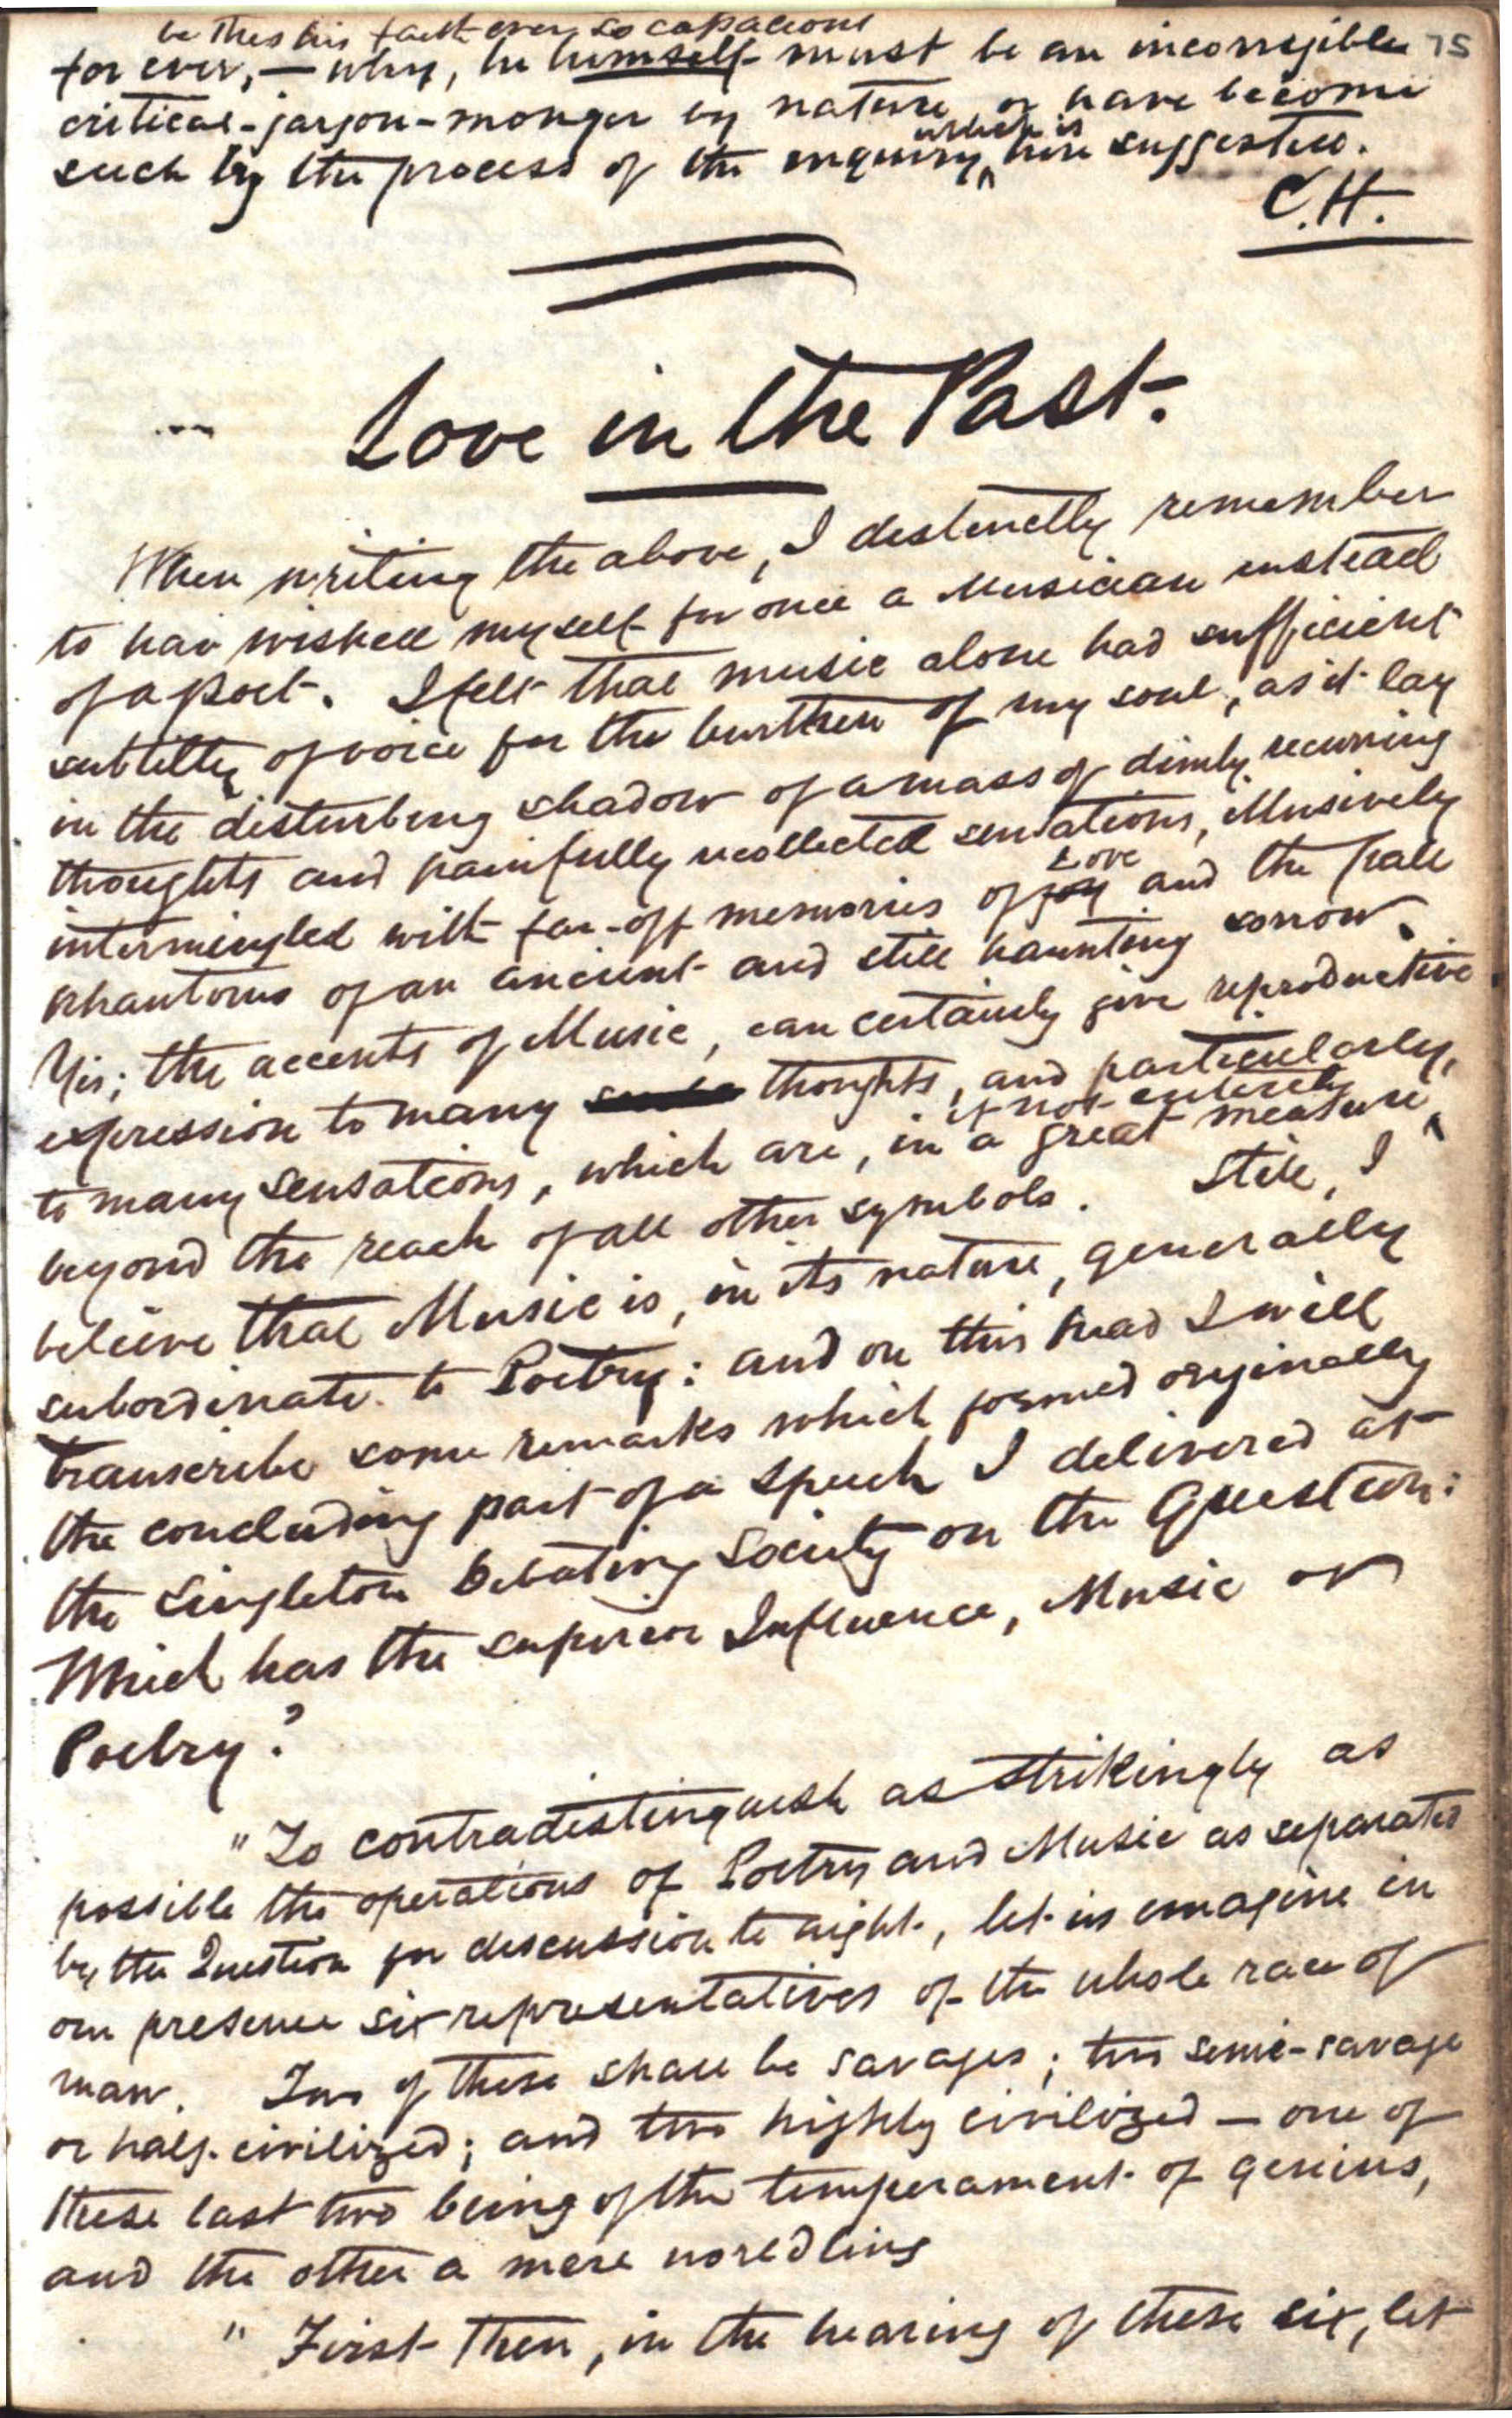 be this his tact ever so capacious
for ever, — why, he himself must be an incorrigible 75
critical-jargon-monger by nature, or have become
such by the process of the inquiry, which is here suggested.
C.H.
Love in the Past.
When writing the above, I distinctly remember
to hav wished myself for once a Musician instead
of a Poet. I felt that music alone had sufficient
subtilty of voice for the burthen of my soul, as it lay
in the disturbing shadow of a mass of dimly recurring
thoughts and painfully recollected sensations, illusively
intermingled with far-off memories of joy Love and the pale
phantoms of an ancient and still haunting sorrow.
Yes; the accents of Music, can certainly give reproductive
expression to many thoughts, and particularly,
to many sensations, which are, in a great measure, if not entirely
beyond the reach of all other symbols. Still, I
believe that Music is, in its nature, generally
subordinate to Poetry: and on this head I will
transcribe some remarks which formed originally
the concluding part of a speech I delivered at
the Singleton Debating Society on the Question:
Which has the superior Influence, Music or
Poetry?
"To contradistinguish as strikingly as
possible the operations of Poetry and Music as separated
by the Question for discussion to night, let us imagine in
our presence six representatives of the whole race of
man. Two of these shall be savages; two semi-savage
or half-civilized; and two highly civilized — one of
these last two being of the temperament of genius,
and the other a mere worldling
" First then, in the hearing of these six, let